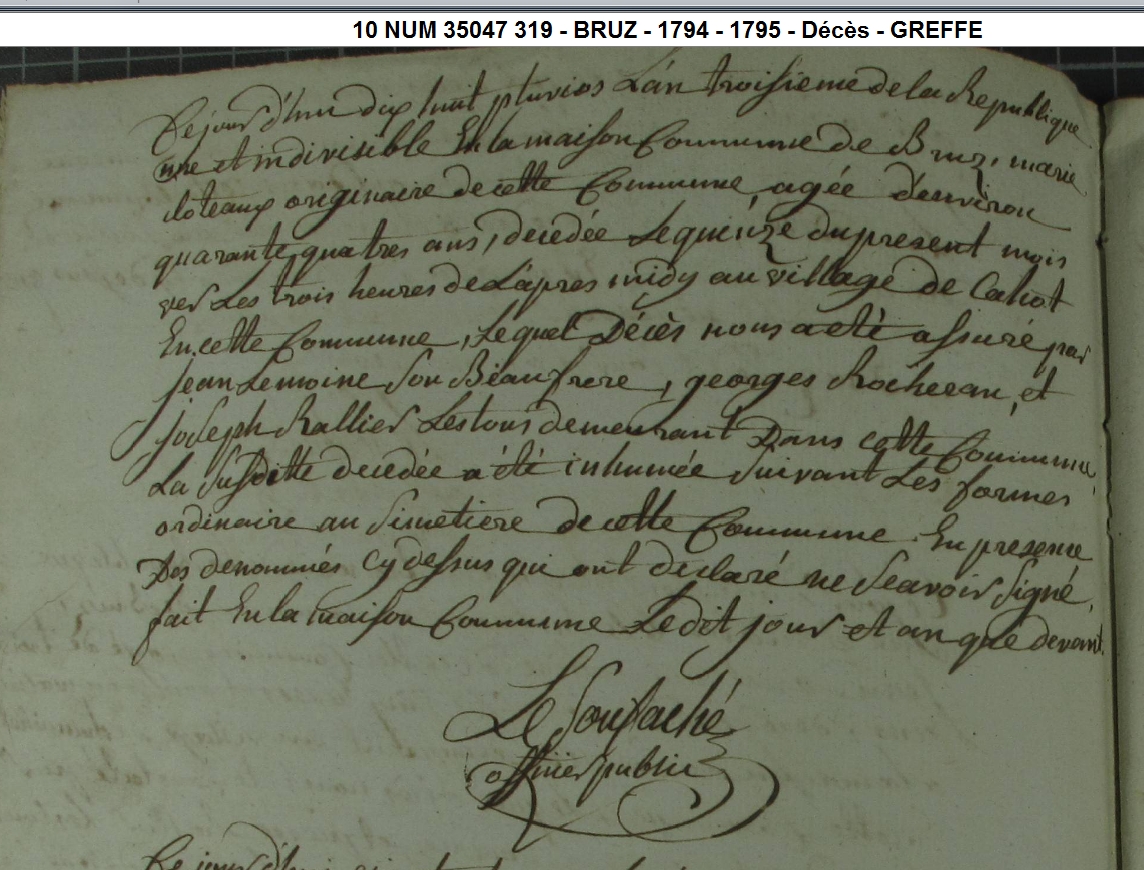 10 NUM 35047 319 - BRUZ - 1794 - 1795 - Décès - GREFFE
Ce jour d'hui dix huit pluvios L'an troisieme de la Republique
une et indivisible En la maison Commune de Bruz, marie
loteaux originaire de cette Commune agée d'environ
quarante quatres ans, decedée Le quinze du present mois
ver Les trois heures de L'apres midy au village de Cahot
En cette Commune, Lequel Décès nous a eté assuré par
jean Lemoine Son Beaufrere, georges Rocheran, et
joseph Rallier Les tous demeurant Dans cette Commune,
La Susditte decedée a été inhumée Suivant Les formes
ordinaire au Simetiere de cette Commune. En presence
Des denommés cy dessus qui ont declaré ne Scavoir Signé,
fait En la maison Commune Ledit jour et an que devant.
officier public
Ce jour d'hui